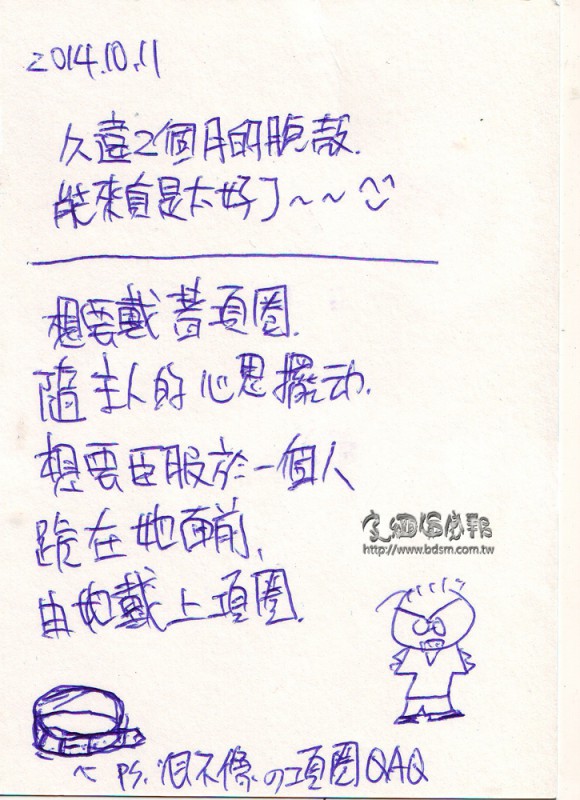 2014.10.11
久違2個月的脫殼.
能來真是太好了~~ ^_^
想要戴著項圈.
隨主人的心思擺动.
想要臣服於一個人
跪在她面前,
由她戴上項圈.
皮繩愉虐邦
http://www.bdsm.com.tw
PS. 很不像の項圈QAQ